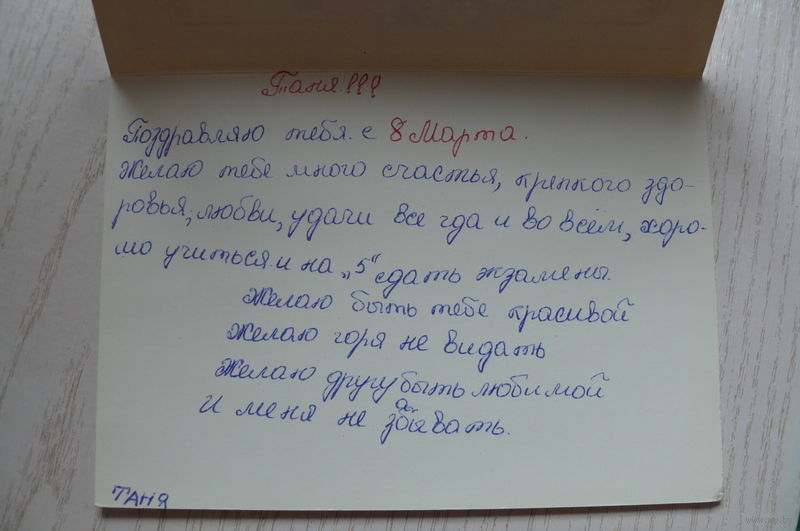 Таня!!!
Поздравляю тебя с 8 Марта.
Желаю тебе много счастья, крепкого здо-
ровья, любви, удачи все гда и во всём, хоро-
шо учиться и на „5“ сдать экзамены.
Желаю быть тебе красивой
Желаю горя не видать
Желаю другу быть любимой
И меня не забывать.
ТАНЯ